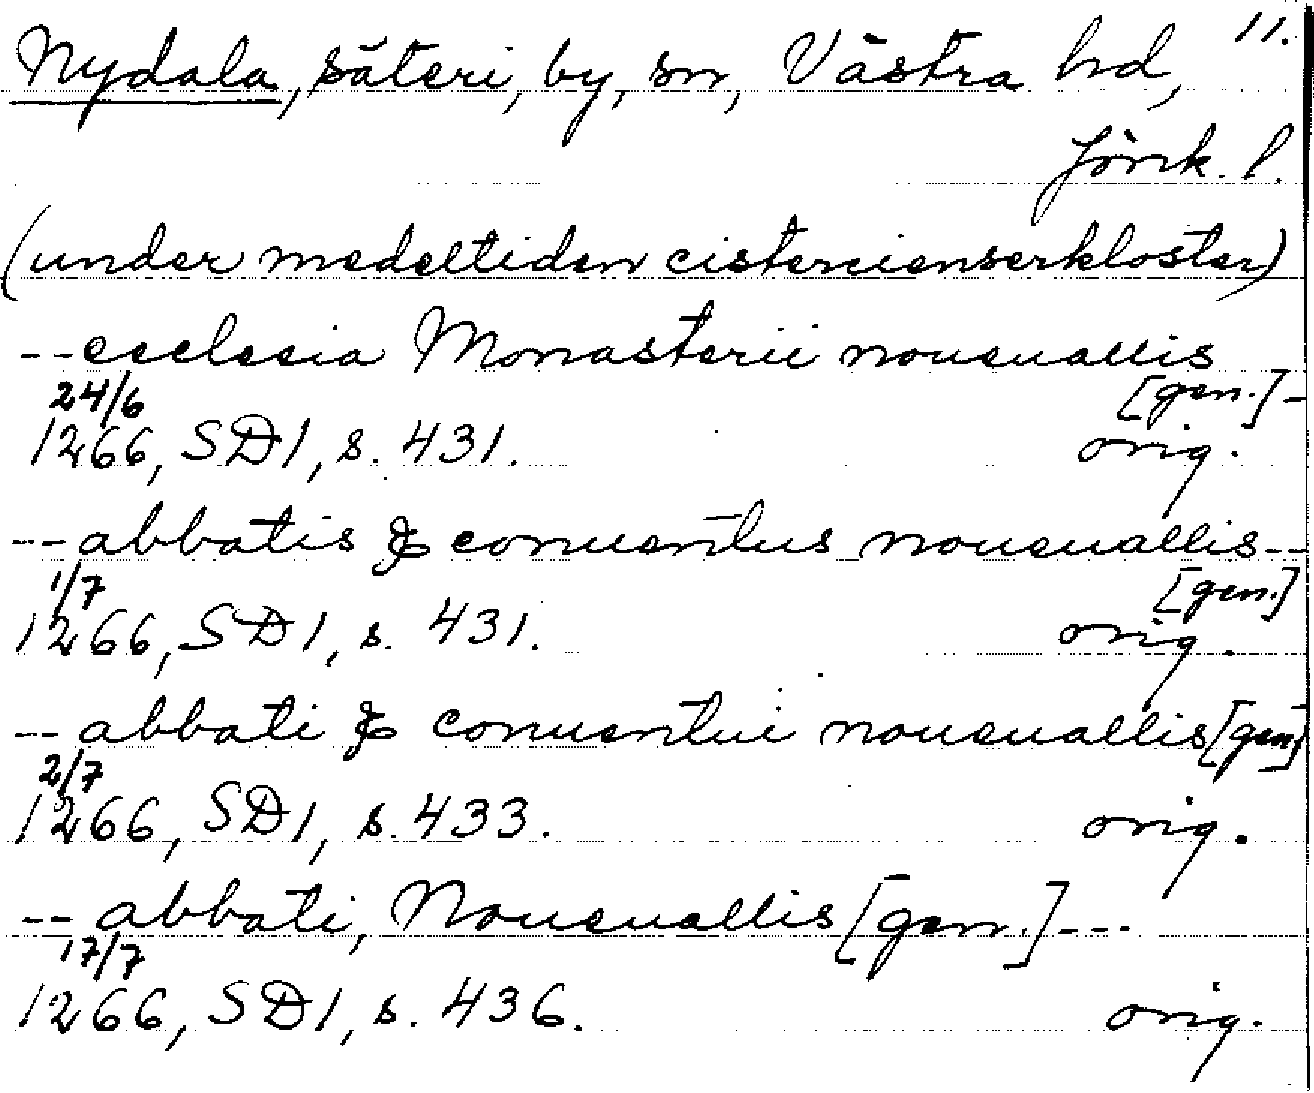 Nydala, säteri, by, sn, Västra hd, 11.
Jönk. l.
(under medeltiden cistercienserkloster)
-- ecclesia Monasterii noueuallis
[gen.] -
24/6
1266, SD1, s. 431. orig.
-- abbatis & conuentus noueuallis --
[gen.]
1/7
1266, SD1, s. 431. orig.
-- abbati & conuentui noueuallis [gen]
2/7
1266, SD1, s. 433. orig.
-- abbati, Noueuallis [gen.] ---
17/7
1266, SD1, s. 436. orig.